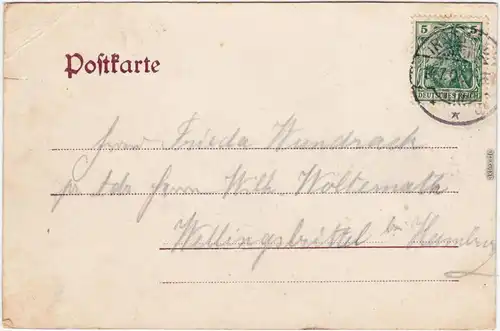 5 5
DEUTSCHES REICH
Postkarte
Frau Frieda Wundrack
Adr Herrn Wilh Woltemath
Wellingsbüttel bei Hamburg